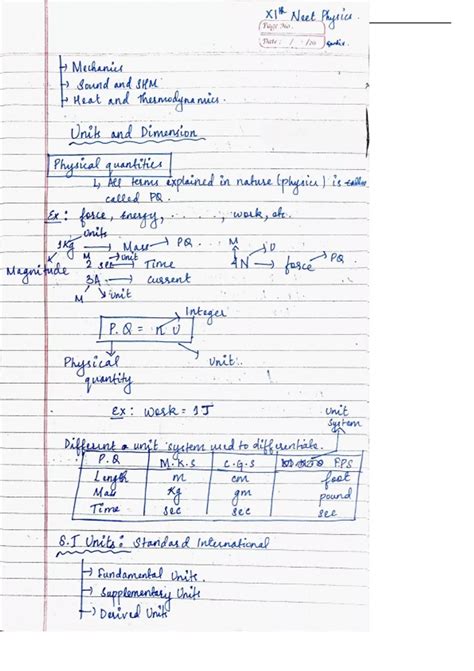 XIth Neet Physics.
Page No.
Date: / /20
→ Mechanics
→ Sound and SHM
→ Heat and Thermodynamics.
Units and Dimension
Physical quantities
↳ All terms explained in nature (physics) is
called PQ.
Ex: force, energy, ......., work, etc.
Units
1Kg → Mass → PQ
Magnitude
M unit
2 sec → Time
3A → current
M unit
M U
4N → force → PQ
Integer
P.Q = n U
Physical quantity
Unit
Ex: work = 1J
Unit System
Different a unit system used to differentiate.
P.Q M.K.S C.G.S FPS
Length m cm foot
Mass Kg gm pound
Time sec sec sec
S.I Units: Standard International
→ Fundamental Units.
→ Supplementary Units
→ Derived Units